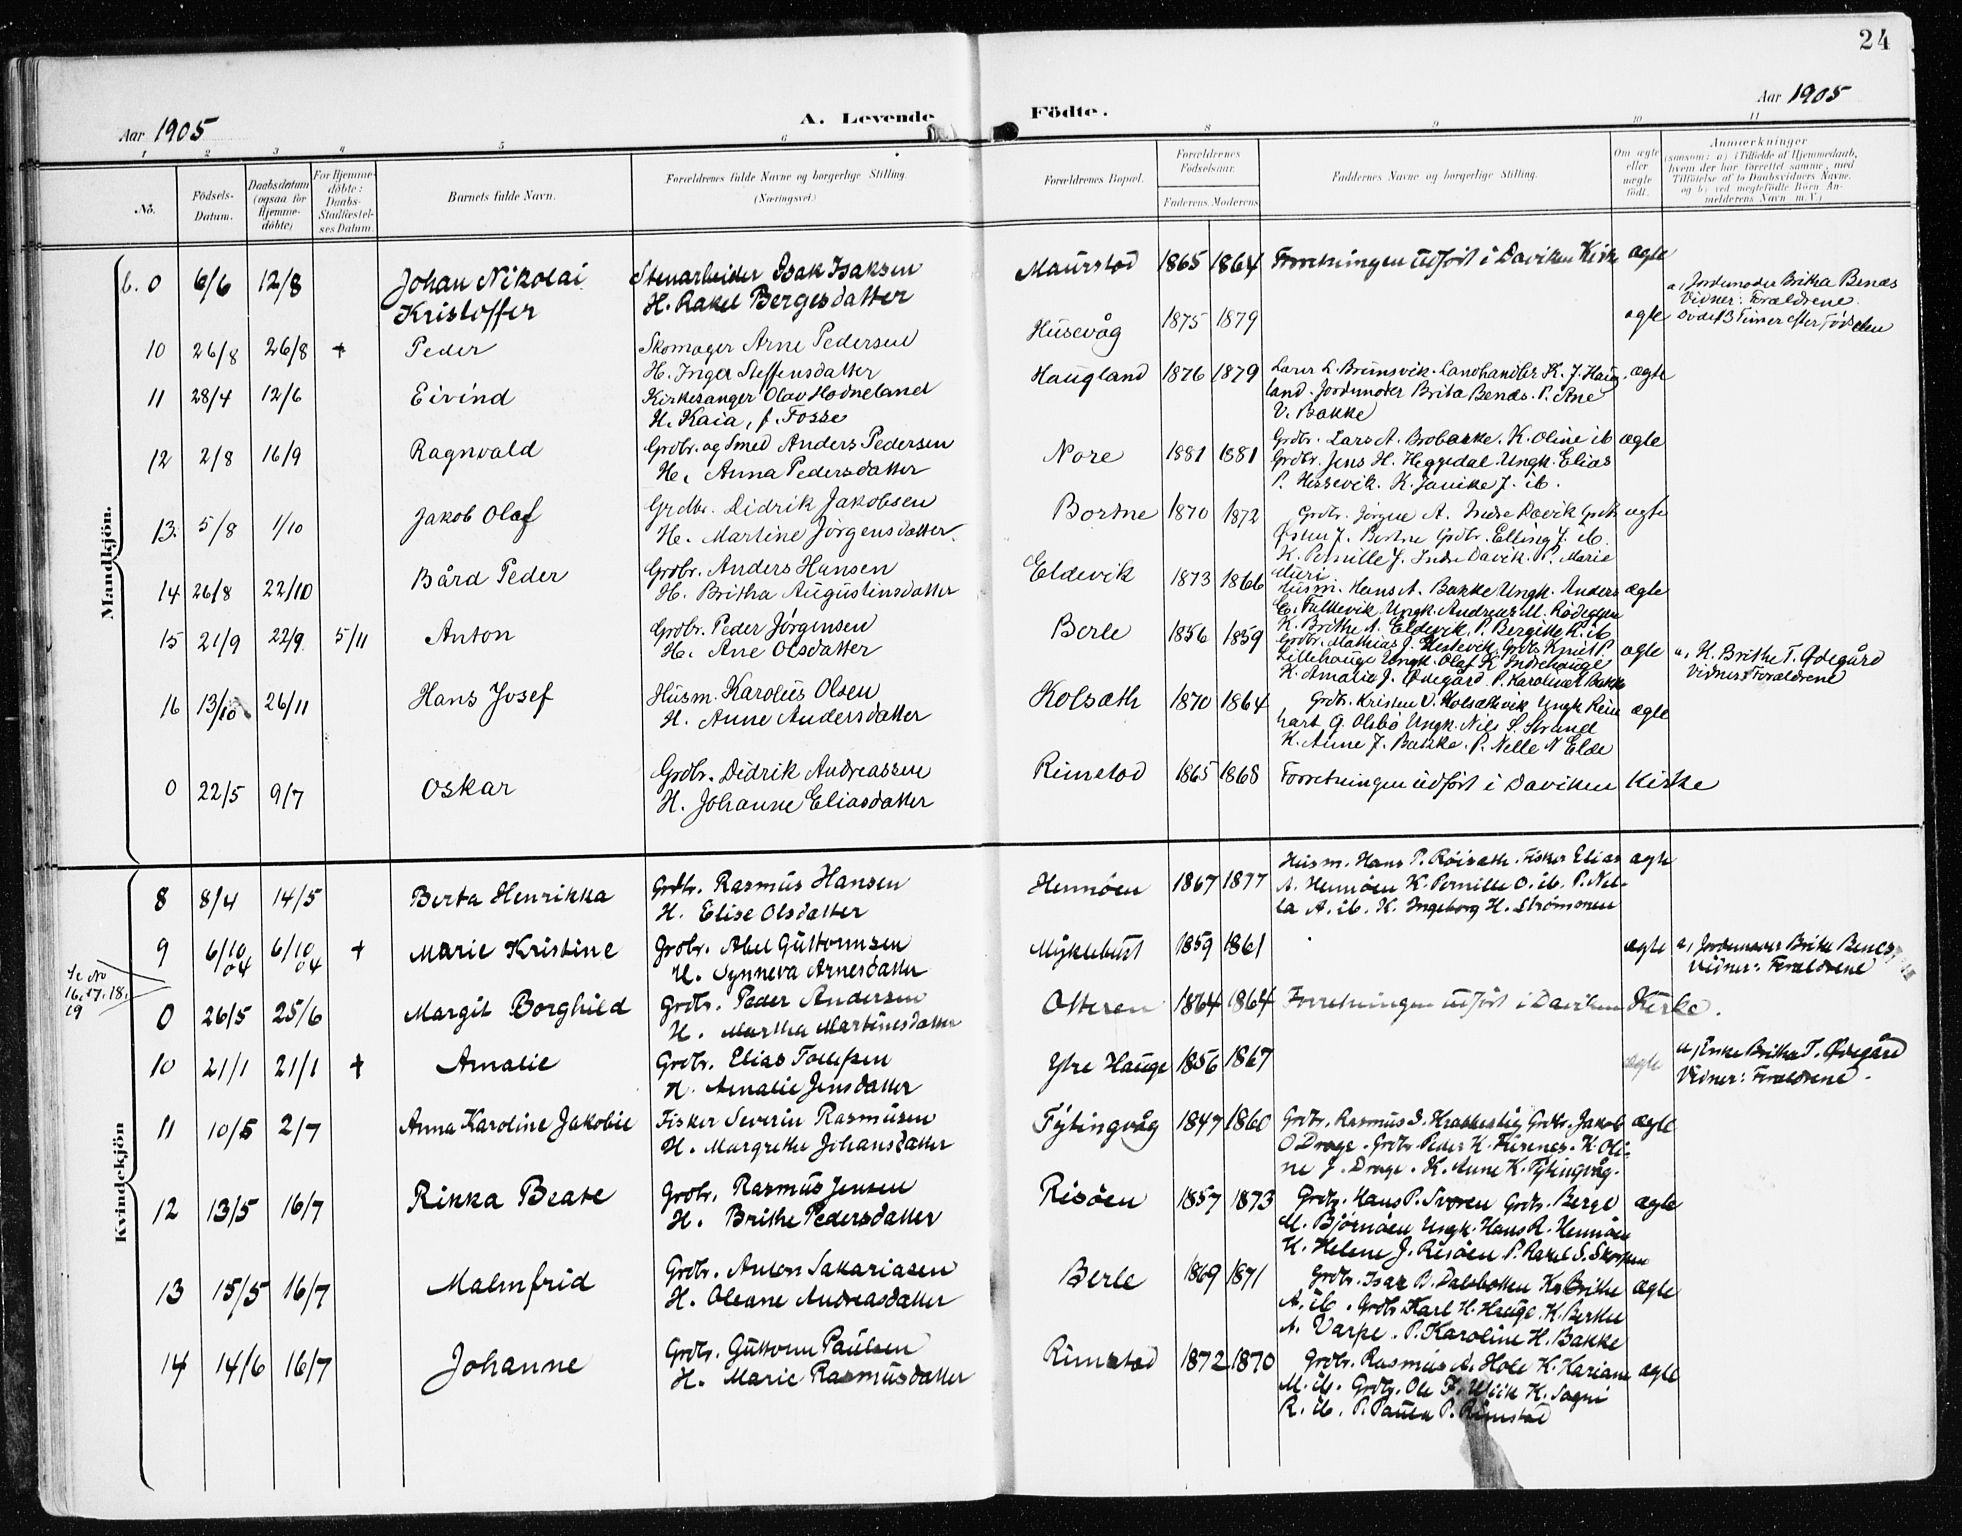 24
Aar 1905
A. Levende Födte.
Aar 1905
1 2 3 4 5 6 8 9 10 11
No. Födsels-Datum. Daabsdatum (ogsaa for Hjemme-döbte) For Hjemme-döbte: Daabs-Stadfæstel-ses Datum. Barnets fulde Navn. Forældrenes fulde Navne og borgerlige Stilling. (Næringsvei.) Forældrenes Bopæl. Forældrenes Födselsaar. Faderens. Moderens. Faddernes Navne og borgerlige Stilling. Om ægte eller uægte födt. Anmærkninger (saasom: a) i Tilfælde af Hjemmedaab, hvem der har forrettet samme, med Tilföielse af to Daabsvidners Navne, og b) ved uægtefödte Börn An-melderens Navn m. V.)
Mandkjön.
b. 0 6/6 12/8 Johan Nikolai Stenarbeider Isak Isaksen Maurstad 1865 1864 Forretningen udført i Daviken Kirke ægte
Kristoffer H. Rakel Bergesdatter
a, Jordemoder Britha Benæs
Vidner: Forældrene.
10 26/8 26/8 + Peder Skomager Arne Pedersen Husevåg 1875 1879 ægte Døde 13 Timer efter Fødselen
H. Inger Steffensdatter
11 28/4 12/6 Eivind Kirkesanger Olav Hodneland Haugland 1876 1879 Lærer L. Brunsvik. Landhandler K. J. Haug- ægte
H. Kaia, f. Fosse land. Jordemoder Brita Benæs. P. Ane
V. Bakke
12 2/8 16/9 Ragnvald Grdbr. og Smed Anders Pedersen Nore 1881 1881 Grdbr. Lars A. Brobakke. K. Oline ib ægte
H. Anna Pedersdatter Grdbr. Jens H. Heggedal. Ungk. Elias
P. Hessevik. K. Janike J. ib.
13. 5/8 1/10 Jakob Olaf Grdbr. Didrik Jakobsen Bortne 1870 1872 Grdbr. Jørgen A. Indre Davik Grdb ægte
H. Martine Jørgensdatter. Østen J. Bortne Grdbr. Elling J. ib.
K. Pernille J. Indre Davik. P. Marie
Muri
14 26/8 22/10 Bård Peder Grdbr. Anders Hansen Eldevik 1873 1866 Husm. Hans A. Bakke Ungk. Anders ægte
H. Britha Augustinsdatter E. Falkevik Ungk. Andreas M. Rødeggen
K. Brithe A. Eldevik. P. Bergitte K. ib
15 21/9 22/9. 5/11 Anton Grdbr. Peder Jørgensen Berle 1856 1859 Grdbr. Mathias J. Hestevik. Grdb. Knut P. ægte a, K. Brithe T. Ødegård
H. Ane Olsdatter Lillehauge Ungk. Olaf K. Indrehauge Vidner: Forældrene
K. Amalie J. Ødegård. P. Karoline H. Bakke
16 13/10 26/11 Hans Josef Husm. Karolus Olsen Kolsæth 1870 1864 Grdbr. Kristen O. Kolsæthvik Ungk. Rein ægte
H. Anne Andersdatter hart G. Olsbø Ungk. Nils S. Strand
K. Anne J. Bakke. P. Nelle N Elde
0 22/5 9/7 Oskar Grdbr. Didrik Andreassen Rimstad 1865 1868 Forretningen udført i Daviken Kirke
H. Johanne Eliasdatter
Kvindekjön
8 8/4 14/5 Berta Henrikka Grdbr. Rasmus Hansen Hennøen 1867 1877 Husm. Hans P. Røisæth. Fisker Elias ægte
H. Elise Olsdatter A. Hennøen K. Pernille O. ib. P. Nel-
la A. ib. K. Ingeborg H. Strømmen
9 6/10 04 6/10 04 + Marie Kristine Grdbr. Abel Guttormsen Myklebust 1859 1861 ægte a, Jordemoder Britha Benæs
H. Synneva Arnesdatter Vidner: Forældrene
Se No
16. 17. 18.
19
0 26/5 25/6 Margit Borghild Grdbr. Peder Andersen Otteren 1864 1864 Forretningen udført i Daviken Kirke.
H. Martha Martinesdatter
10 21/1 21/1 + Amalie Grdbr. Elias Tollefsen Ytre Hauge 1856 1867 ægte a, Enke Britha T. Ødegård
H. Amalie Jensdatter Vidner: Forældrene.
11 10/5 2/7 Anna Karoline Jakobie Fisker Severin Rasmusen Tytingvåg 1847 1860 Grdbr. Rasmus S. Krabbestig Grdbr. Jakob ægte
H. Margrethe Johansdatter O Drage. Grdbr. Peder K. Furenes. K. Oli-
ne J. Drage. K. Anne K. Tytingvåg.
12 13/5 16/7 Rikka Beate Grdbr. Rasmus Jensen Risøen 1857 1873 Grdbr. Hans P. Svoren Grdbr. Berge ægte
H. Brithe Pedersdatter M. Bjørnøen Ungk. Hans R. Hennøen
K. Helene J. Risøen P. Rakel S. Skorpen
13 15/5 16/7 Malmfrid Grdbr. Anton Sakariasen Berle 1869 1871 Grdbr. Isak D. Dalsbotten K. Brithe ægte
H. Oleane Andreasdatter A. ib. Grdbr. Karl H. Hauge. K. Berthe
A. Varpe. P. Karoline H. Bakke
14 14/6 16/7 Johanne Grdbr. Guttorm Paulsen Rimstad 1872 1870 Grdbr. Rasmus A. Hole K. Kariane ægte
H. Marie Rasmusdatter M. ib. Grdbr. Ole F. Wiik K. Sogni
R. ib. P. Paula P. Rimstad